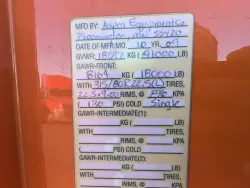 MFD BY: Aspen Equipment Co
Bloomington, MN 55420
DATE OF MFR: MO. 10 YR. 07
GVWR: 18587 KG ( 41000 LB)
GAWR-FRONT:
8164 KG ( 18000 LB)
WITH 315/80R22.5(L) TIRES,
22.5x9.00 RIMS, @ KPA
( 130 PSI) COLD Single
GAWR-INTERMEDIATE(1):
KG ( LB)
WITH TIRES,
RIMS, @ KPA
( PSI) COLD
GAWR-INTERMEDIATE(2):
KG ( LB)
WITH TIRES,
RIMS, @ KPA